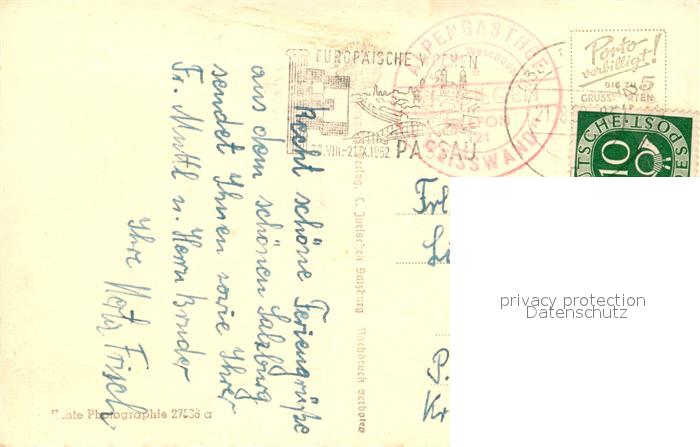 EUROPÄISCHE WOCHEN
PASSAU
22.VIII.-21.IX.1952
ALPENGASTHOF
TELEFON
21
Porto
verbilligt!
BIS ZU 5
GRUSSWORTEN
DEUTSCHE POST
10
Recht schöne Feriengrüße
aus dem schönen Salzburg
sendet Ihnen sowie Ihrer
Fr. Muttl u. Herrn Bruder
Ihre Frisch
Verlag, C. Jurischek Salzburg Nachdruck verboten
Frl
Li
P.
Kr
Echte Photographie 27536 a
privacy protection
Datenschutz